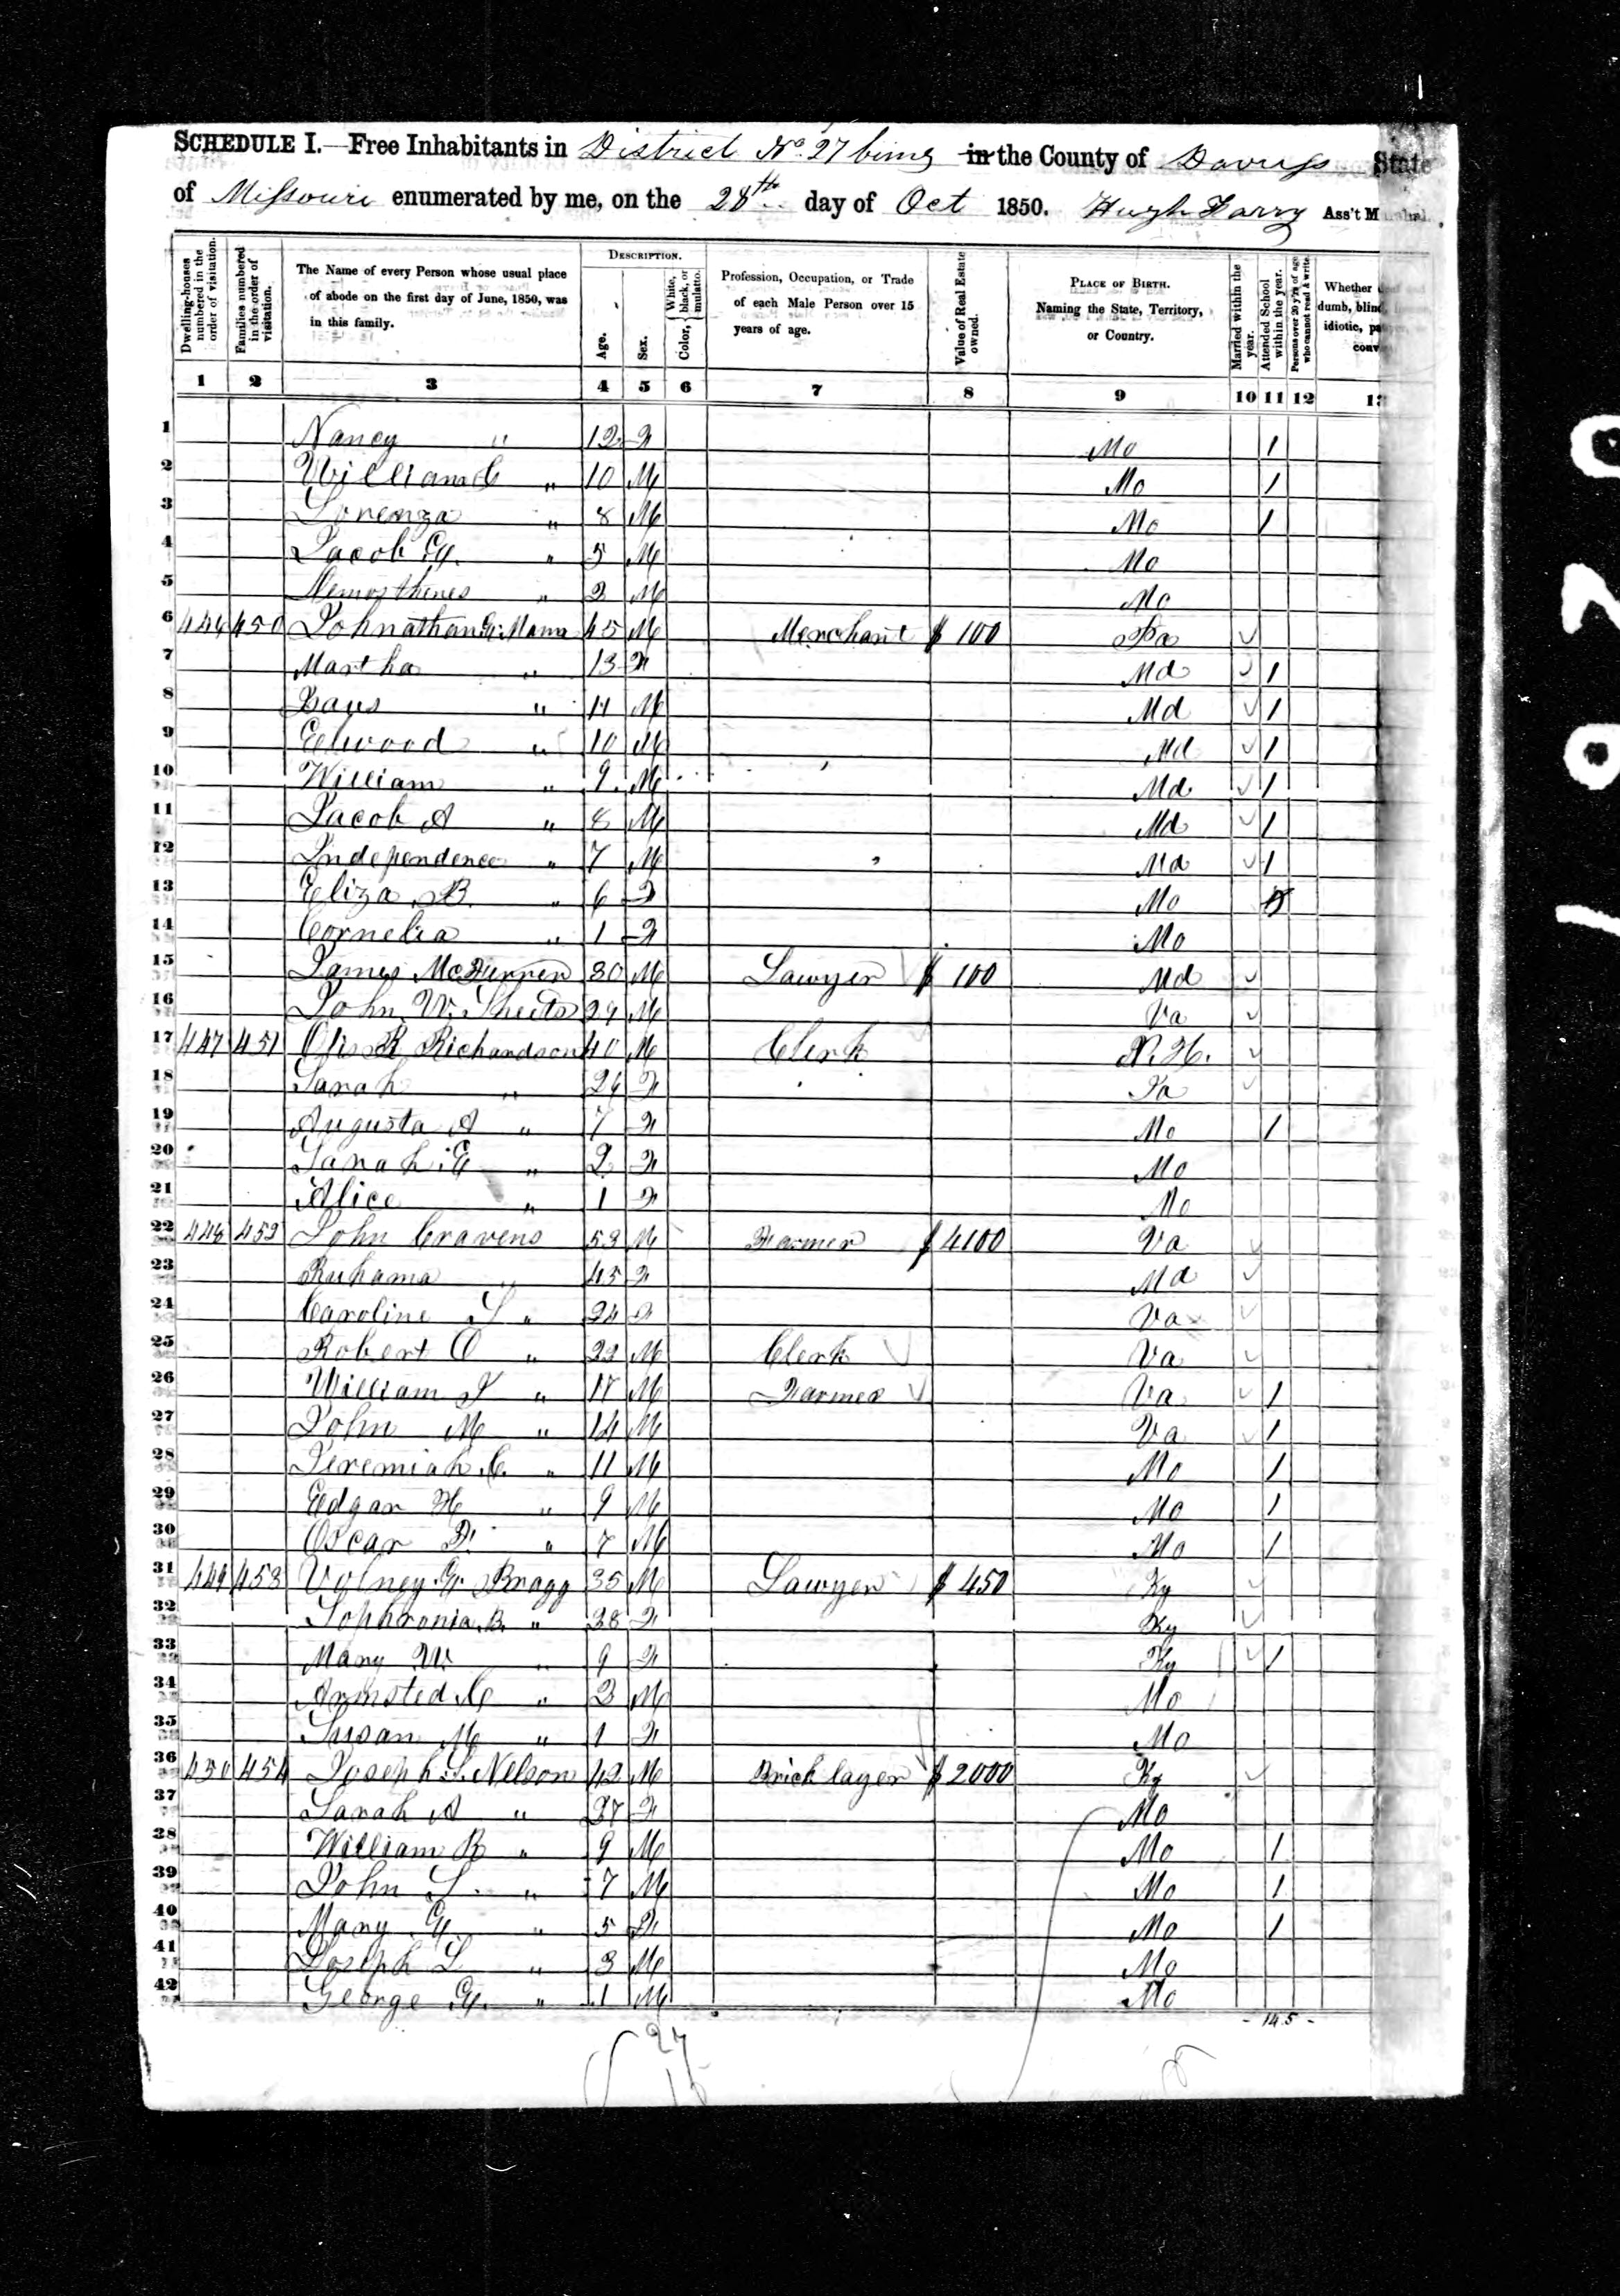 SCHEDULE I.—Free Inhabitants in District No. 27 being in the County of Daviess State
of Missouri enumerated by me, on the 28th day of Oct 1850. Hugh Ass't Marshal.
Dwelling-houses numbered in the order of visitation.
Families numbered in the order of visitation.
The Name of every Person whose usual place of abode on the first day of June, 1850, was in this family.
DESCRIPTION.
Age.
Sex.
Color, White, black, or mulatto.
Profession, Occupation, or Trade of each Male Person over 15 years of age.
Value of Real Estate owned.
PLACE OF BIRTH. Naming the State, Territory, or Country.
Married within the year.
Attended School within the year.
Persons over 20 y'rs of age who cannot read & write.
Whether deaf and dumb, blind, idiotic,
1 2 3 4 5 6 7 8 9 10 11 12 13
1 Nancy " 12 F Mo 1
2 William C " 10 M Mo 1
3 Lorenza " 8 M Mo 1
4 Jacob G. " 5 M Mo
5 Demosthenes " 2 M Mo
6 446 450 Johnathan G. Mann 45 M Merchant $ 100 Pa
7 Martha " 13 F Md 1
8 " 11 M Md 1
9 Elwood " 10 M Md 1
10 William " 9 M Md 1
11 Jacob A " 8 M Md 1
12 Independence " 7 M Md 1
13 Eliza B. " 6 F Mo
14 Cornelia " 1 F Mo
15 James 30 M Lawyer $ 100 Md
16 John W. Sheets 29 M Va
17 447 451 Otis R Richardson 40 M Clerk N. H.
18 Sarah " 26 F
19 Augusta A " 7 F Mo 1
20 Sarah E " 2 F Mo
21 Alice " 1 F Mo
22 448 452 John Cravens 53 M Farmer $ 4100 Va
23 Ruhama " 45 F Md
24 Caroline S " 24 F Va
25 Robert O " 22 M Clerk Va
26 William J " 17 M Farmer Va 1
27 John M " 14 M Va 1
28 Jeremiah C. " 11 M Mo 1
29 Edgar H " 9 M Mo 1
30 Oscar F. " 7 M Mo 1
31 449 453 Volney G. Bragg 35 M Lawyer $ 450 Ky
32 Sophronia B. " 28 F Ky
33 Mary W. " 9 F Ky 1
34 Armsted C " 3 M Mo
35 Susan M " 1 F Mo
36 450 454 Joseph L. Nelson 42 M Brick layer $ 2000 Ky
37 Sarah A " 27 F Mo
38 William B " 9 M Mo 1
39 John S. " 7 M Mo 1
40 Mary G. " 5 F Mo 1
41 Joseph L " 3 M Mo
42 George G. " 1 M Mo
- 145 -
27
15